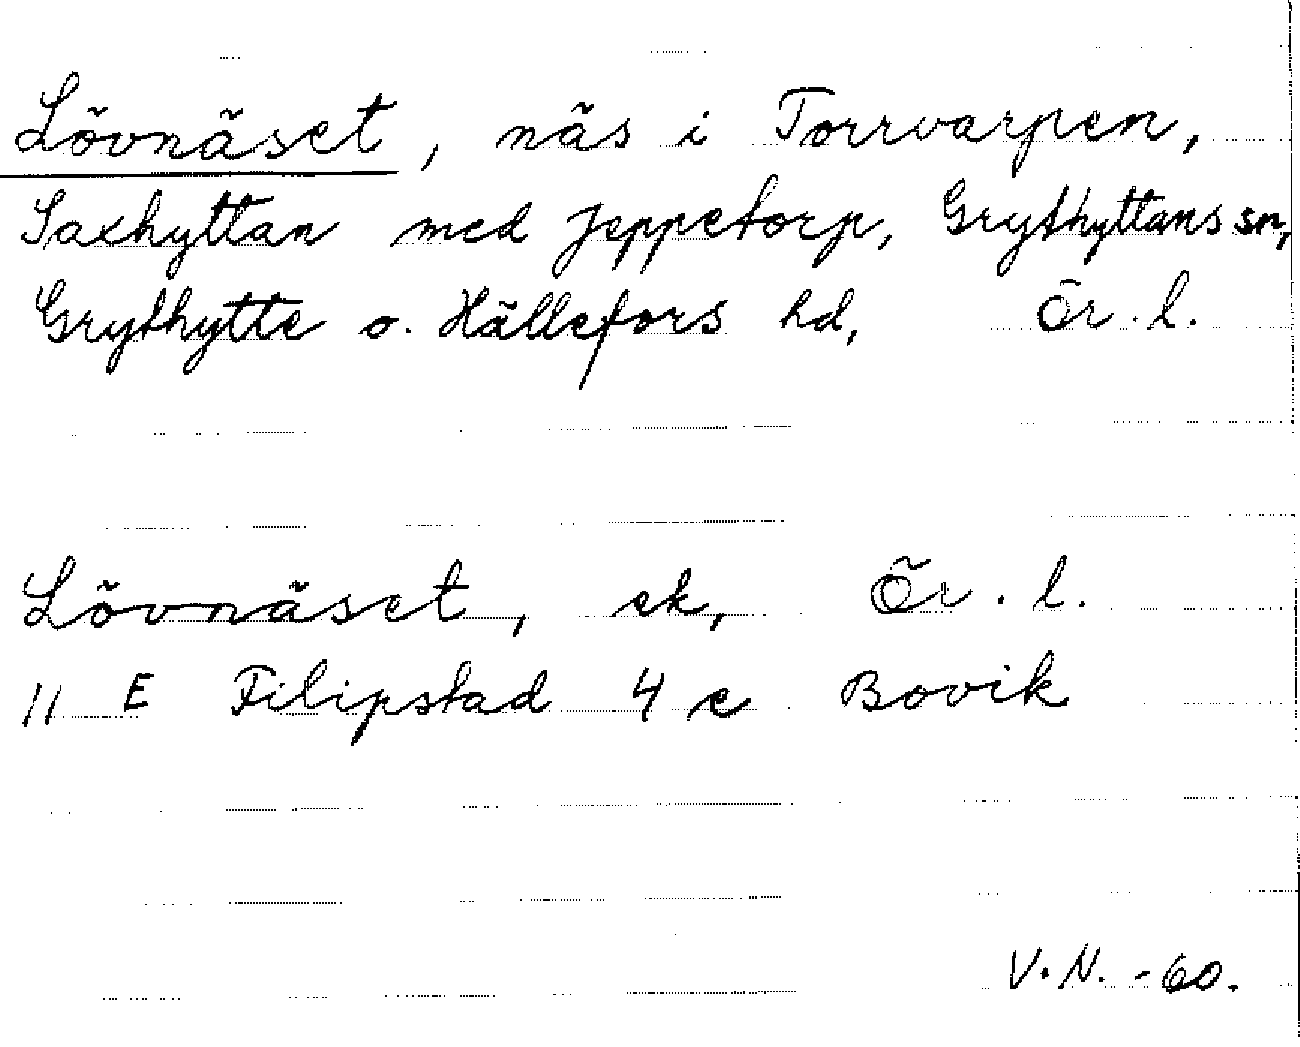 Lövnäset, näs i Torrvarpen,
Saxhyttan med Jeppetorp, Grythyttans sn,
Grythytte o. Hällefors hd, Ör. l.
Lövnäset, ek, Ör. l.
11 E Filipstad 4 e Bovik
V. N. -60.